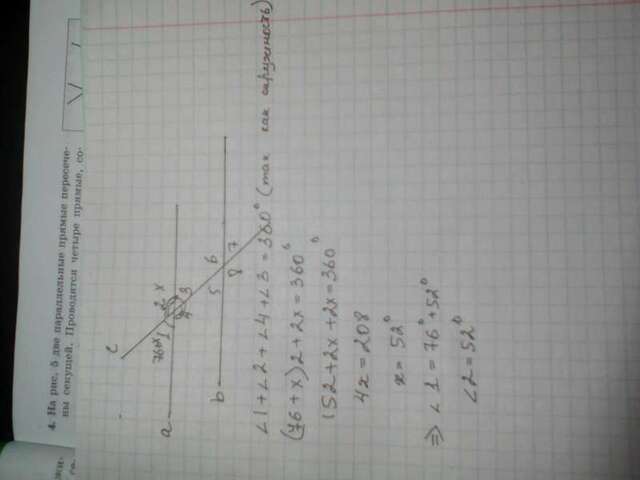 4. На рис. 5 две параллельные прямые пересече-
ны секущей. Проводятся четыре прямые, со-
c
76+x
1
2
x
3
4
a
5
6
7
8
b
∠1+∠2+∠4+∠3=360° (так как окружность)
(76+x)2+2x=360°
152+2x+2x=360°
4x=208
x=52°
⇒ ∠1=76°+52°
∠2=52°